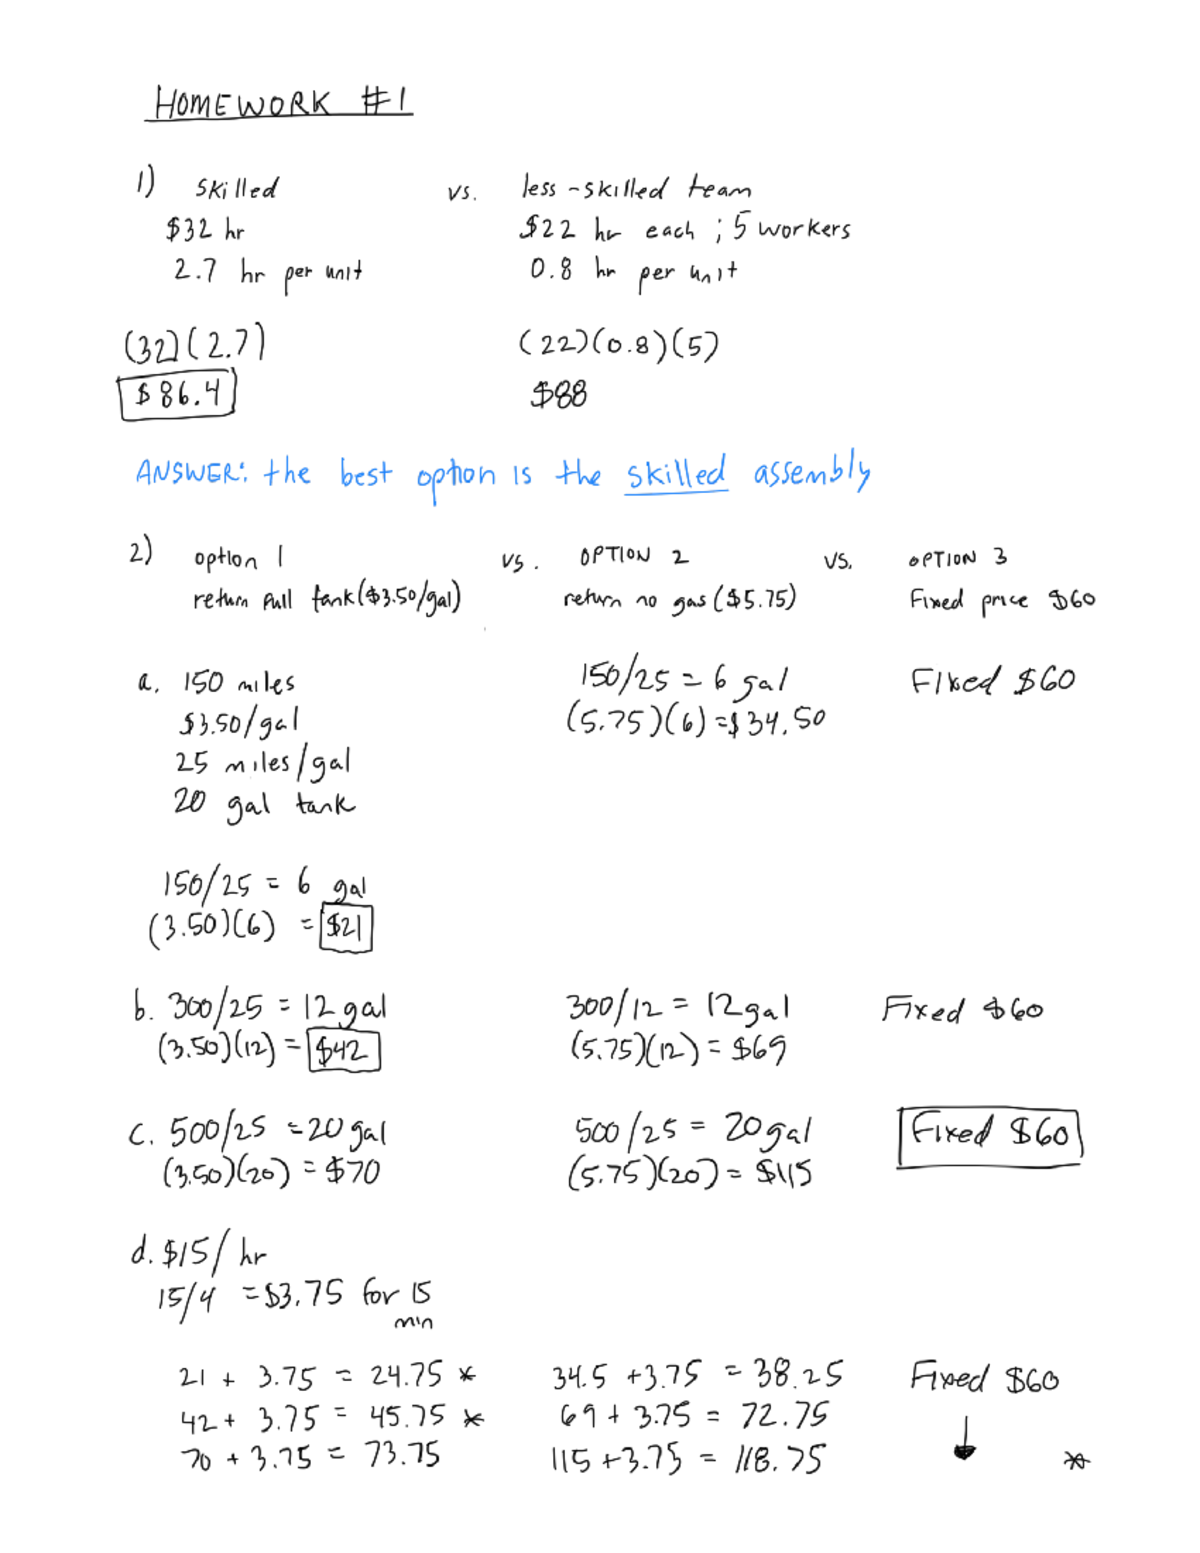 HOMEWORK #1
1) skilled vs. less-skilled team
$32 hr $22 hr each ; 5 workers
2.7 hr per unit 0.8 hr per unit
(32)(2.7) (22)(0.8)(5)
$86.4 $88
ANSWER: the best option is the skilled assembly
2) option 1 vs. OPTION 2 vs. OPTION 3
return full tank($3.50/gal) return no gas ($5.75) Fixed price $60
a. 150 miles 150/25 = 6 gal Fixed $60
$3.50/gal (5.75)(6) = $34.50
25 miles/gal
20 gal tank
150/25 = 6 gal
(3.50)(6) = $21
b. 300/25 = 12 gal 300/12 = 12 gal Fixed $60
(3.50)(12) = $42 (5.75)(12) = $69
c. 500/25 = 20 gal 500/25 = 20 gal Fixed $60
(3.50)(20) = $70 (5.75)(20) = $115
d. $15/hr
15/4 = $3.75 for 15
min
21 + 3.75 = 24.75 * 34.5 + 3.75 = 38.25 Fixed $60
42 + 3.75 = 45.75 * 69 + 3.75 = 72.75
70 + 3.75 = 73.75 115 + 3.75 = 118.75 *